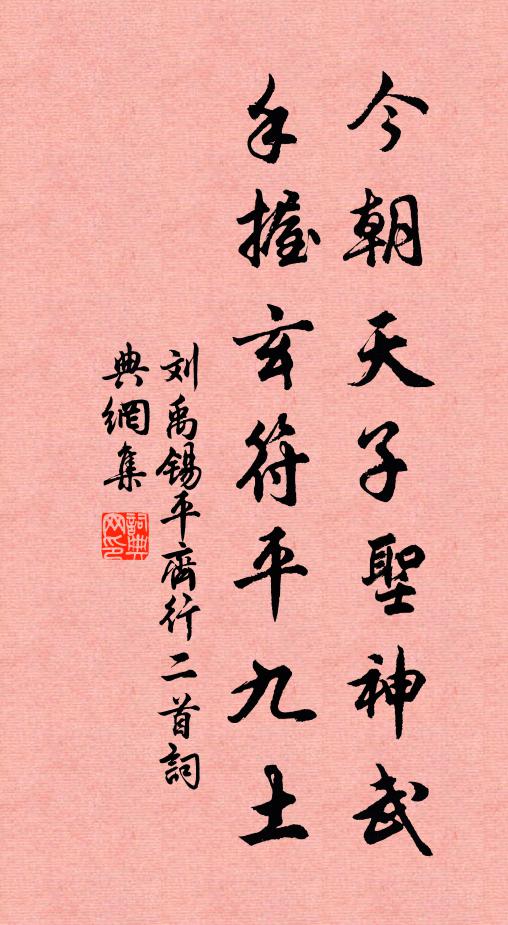 今朝天子聖神武
手握玄符平九土
刘禹锡平齊行二首詞
典網集
詞典
网印